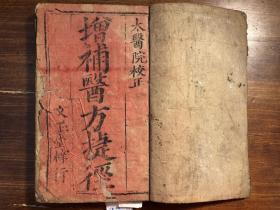 太醫院校正
增補醫方捷徑
文玉堂梓行